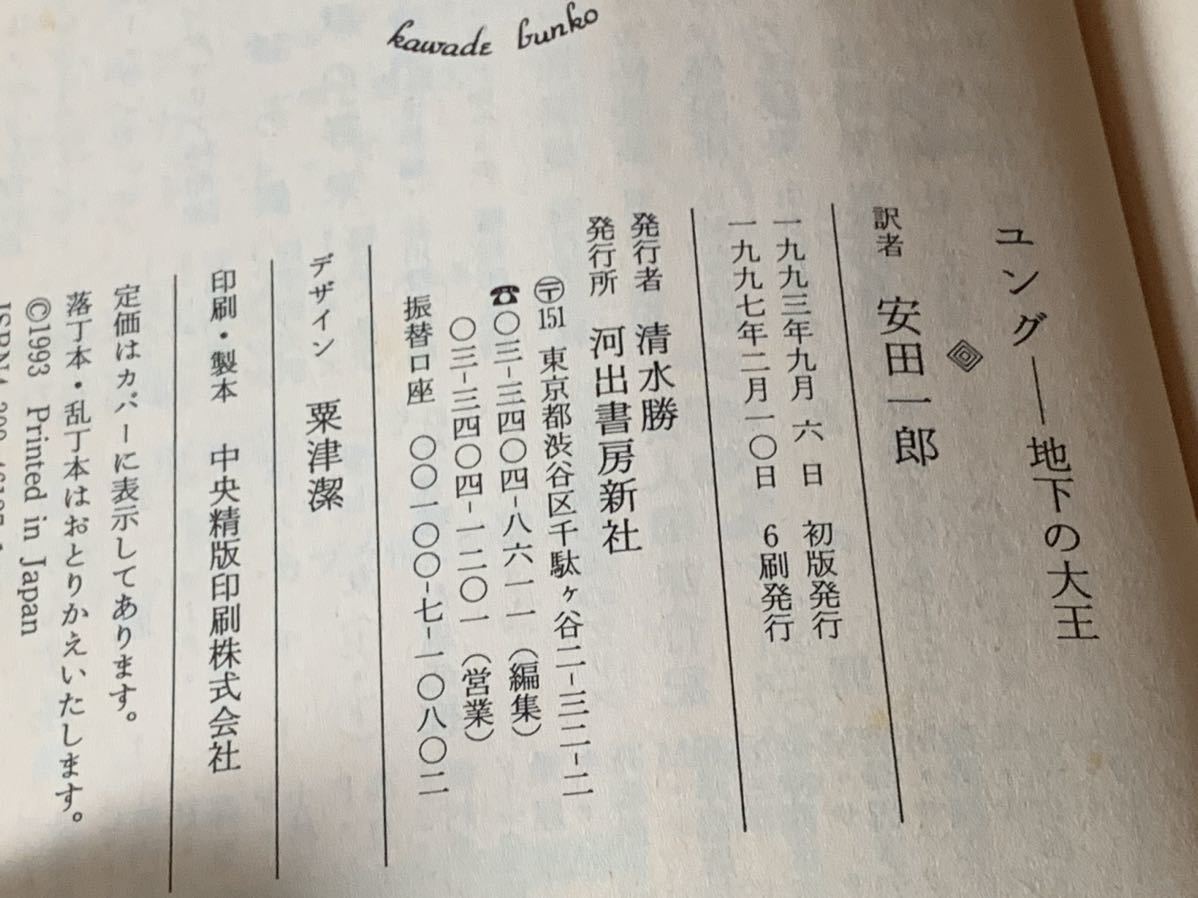 kawade bunko
ユング――地下の大王
訳者 安田一郎
一九九三年九月 六 日 初版発行
一九九七年二月一〇日 6刷発行
発行者 清水勝
発行所 河出書房新社
〒151 東京都渋谷区千駄ヶ谷二-三二-二
☎〇三-三四〇四-八六一一(編集)
〇三-三四〇四-一二〇一(営業)
振替口座 〇〇一〇〇-七-一〇八〇二
デザイン 粟津潔
印刷・製本 中央精版印刷株式会社
定価はカバーに表示してあります。
落丁本・乱丁本はおとりかえいたします。
©1993 Printed in Japan